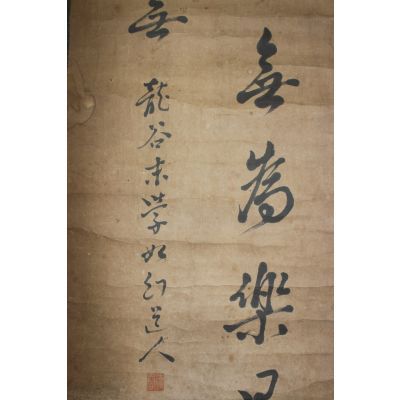 無為樂
龍谷末學如幻道人